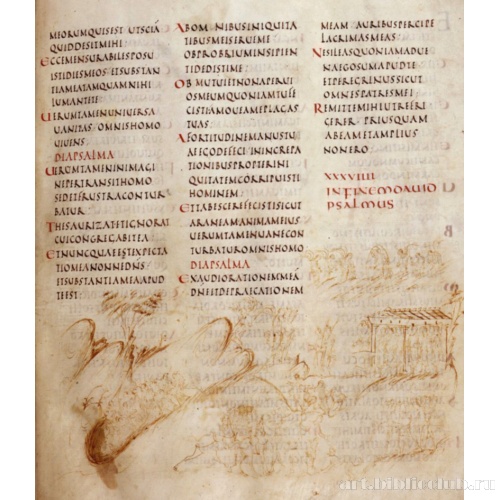 MEORUM QUIS EST UT SCIĀ
QUID DESIT MIHI
ECCE MENSURABILES POSU
ISTI DIES MEOS ET SUBSTAN
TIA MEA TAMQUAM NIHI
LUM ANTE TE
UERUMTAMEN UNIUERSA
UANITAS OMNIS HOMO
UIUENS
DIAPSALMA
UERUMTAMEN IN IMAGI
NE PERTRANSIT HOMO
SED ET FRUSTRA CONTUR
BATUR
THESAURIZAT ET IGNORAT
CUI CONGREGABIT EA
ET NUNC QUAE EST EXPECTA
TIO MEA NONNE DNS
ET SUBSTANTIA MEA APUD
TE EST
AB OMNIBUS INIQUITA
TIBUS MEIS ERUE ME
OBPROBRIUM INSIPIEN
TI DEDISTI ME
OBMUTUI ET NON APERUI
OS MEUM QUONIAM TU FE
CISTI AMOUE A ME PLAGAS
TUAS
A FORTITUDINE MANUS TU
AE EGO DEFECI IN INCREPA
TIONIBUS PROPTER INI
QUITATEM CORRIPUISTI
HOMINEM
ET TABESCERE FECISTI SICUT
ARANEAM ANIMAM EIUS
UERUMTAMEN UANE CON
TURBATUR OMNIS HOMO
DIAPSALMA
EXAUDI ORATIONEM MEĀ
DNE ET DEPRAECATIONEM
MEAM AURIBUS PERCIPE
LACRIMAS MEAS
NE SILEAS QUONIAM ADUE
NA EGO SUM APUD TE
ET PEREGRINUS SICUT
OMNES PATRES MEI
REMITTE MIHI UT REFRI
GERER PRIUSQUAM
ABEAM ET AMPLIUS
NON ERO
XXXVIIII
IN FINEM DAUID
PSALMUS
art.biblioclub.ru